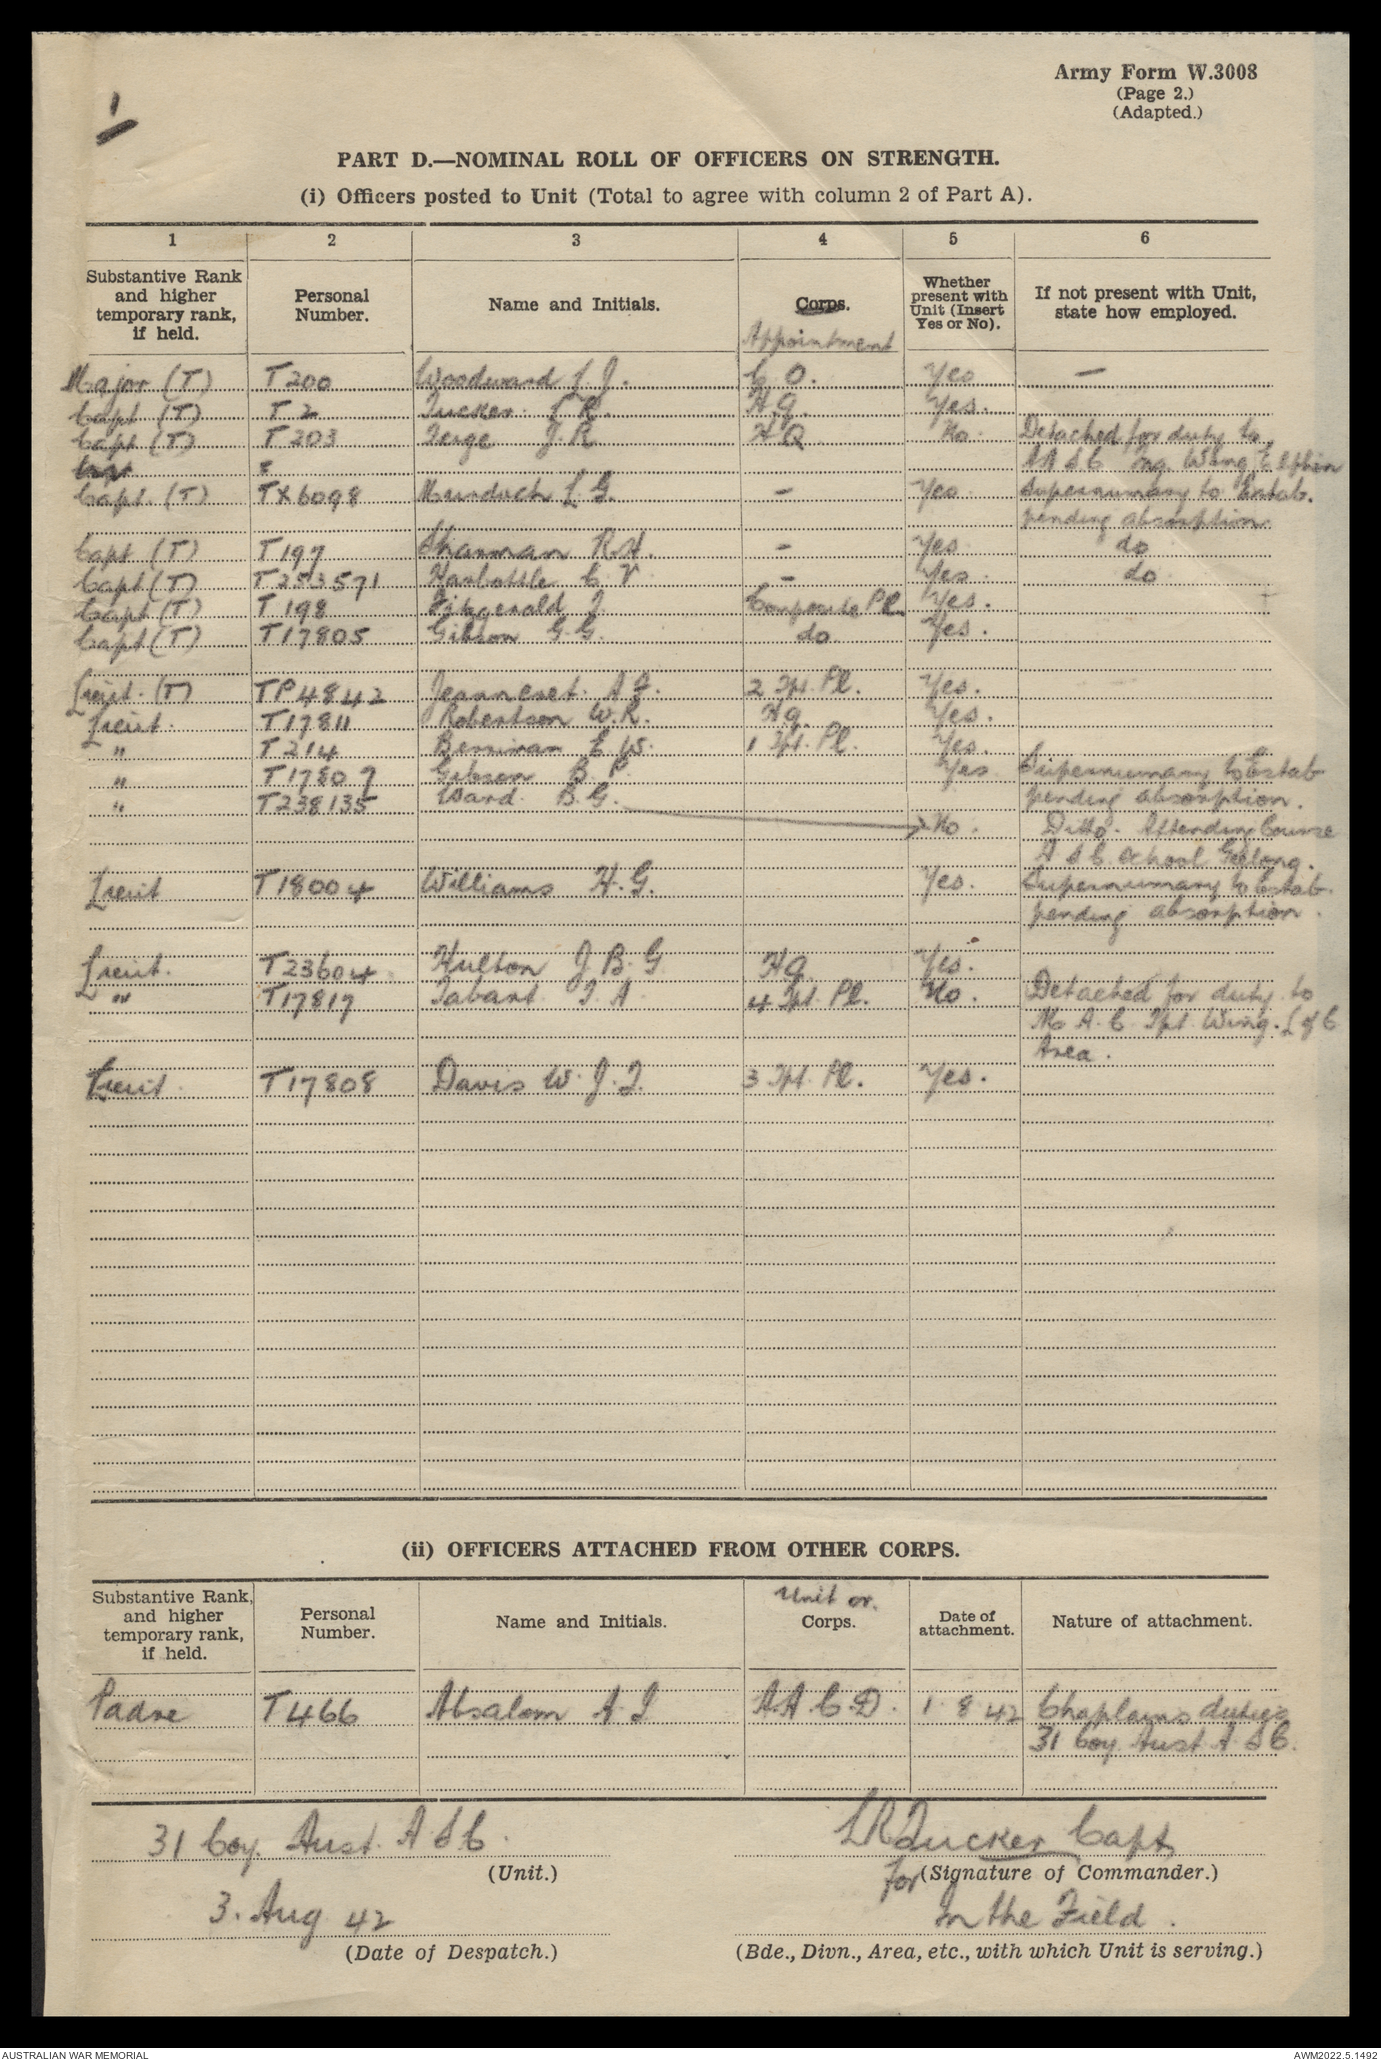 1
Army Form W.3008
(Page 2.)
(Adapted.)
PART D.—NOMINAL ROLL OF OFFICERS ON STRENGTH.
(i) Officers posted to Unit (Total to agree with column 2 of Part A).
1 2 3 4 5 6
Substantive Rank and higher temporary rank, if held. Personal Number. Name and Initials. Corps. Whether present with Unit (Insert Yes or No). If not present with Unit, state how employed.
Appointment
Major (T) T200 Woodward L. J. C O. Yes —
Capt (T) T2 Tucker L R. HQ Yes.
Capt (T) T203 J. R HQ No. Detached for duty to
AASC Wing
Capt. (T) TX6098 Murdoch L G. - Yes Supernumary to Estab.
pending absorption.
Capt (T) T197 Sharman R. H. - Yes do
Capt (T) T253571 Harbottle C V - Yes do
Capt (T) T198 Fitzgerald J. Composite Pl. Yes.
Capt (T) T17805 Gibson G. G. do Yes.
Lieut. (T) TP4842 Jeanneret. A J. 2 Tpt. Pl. Yes.
Lieut. T17811 Robertson W. R. HQ. Yes.
" T214 Berriman E W. 1 Tpt. Pl. Yes
" T17807 Gibson B. P. Yes Supernumary to Estab
" T238135 Ward. B. G. pending absorption.
No. Ditto. Attending Course
A S C School Geelong.
Lieut T18004 Williams H. G. Yes. Supernumary to Estab.
pending absorption.
Lieut. T23604 Hulton J. B. G HQ. Yes.
" T17817 Tabart J. A. 4 Tpt. Pl. No. Detached for duty to
A. C Tpt. Wing. L of C
Area.
Lieut T17808 Davis W. J. J. 3 Tpt. Pl. Yes.
(ii) OFFICERS ATTACHED FROM OTHER CORPS.
Substantive Rank, and higher temporary rank, if held. Personal Number. Name and Initials. Unit or Corps. Date of attachment. Nature of attachment.
Padre T466 Absalom A I A.A C D. 1 8 42 Chaplains duties
31 Coy Aust A S C.
31 Coy. Aust. A S C. L R Tucker Capt
(Unit.) For (Signature of Commander.)
3. Aug 42 In the Field.
(Date of Despatch.) (Bde., Divn., Area, etc., with which Unit is serving.)
AUSTRALIAN WAR MEMORIAL AWM2022.5.1492